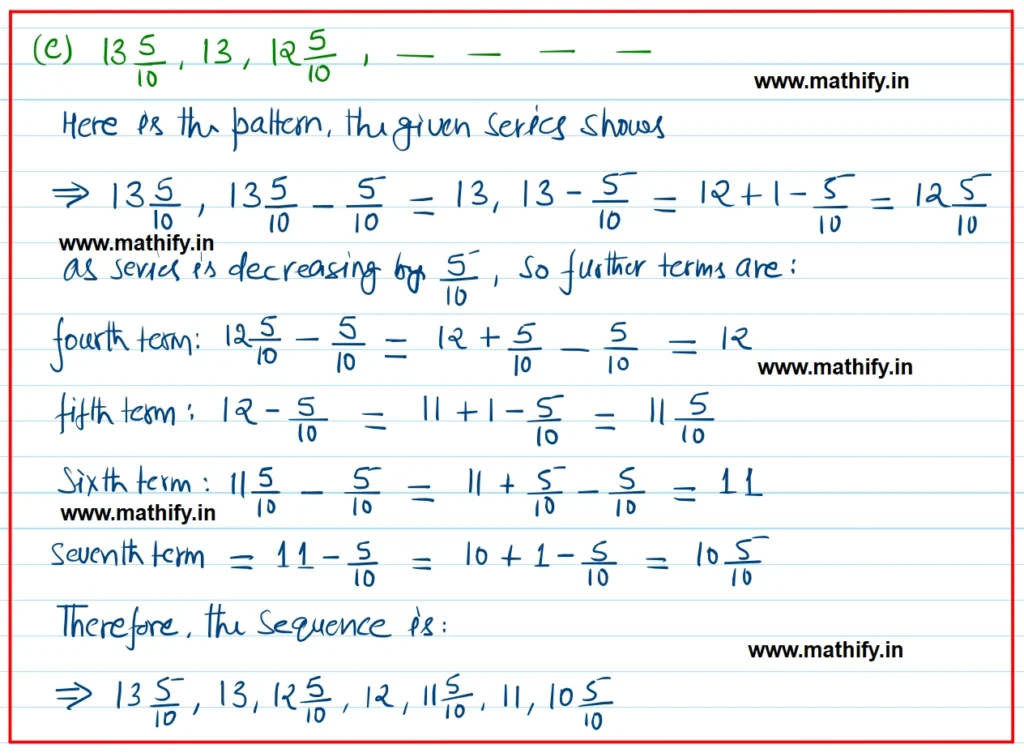 (e) 13 5/10, 13, 12 5/10, — — — —
www.mathify.in
Here is the pattern, the given series shows
⇒ 13 5/10, 13 5/10 − 5/10 = 13, 13 − 5/10 = 12 + 1 − 5/10 = 12 5/10
www.mathify.in
as series is decreasing by 5/10, so further terms are:
fourth term: 12 5/10 − 5/10 = 12 + 5/10 − 5/10 = 12
www.mathify.in
fifth term: 12 − 5/10 = 11 + 1 − 5/10 = 11 5/10
Sixth term: 11 5/10 − 5/10 = 11 + 5/10 − 5/10 = 11
www.mathify.in
Seventh term = 11 − 5/10 = 10 + 1 − 5/10 = 10 5/10
Therefore, the sequence is:
www.mathify.in
⇒ 13 5/10, 13, 12 5/10, 12, 11 5/10, 11, 10 5/10